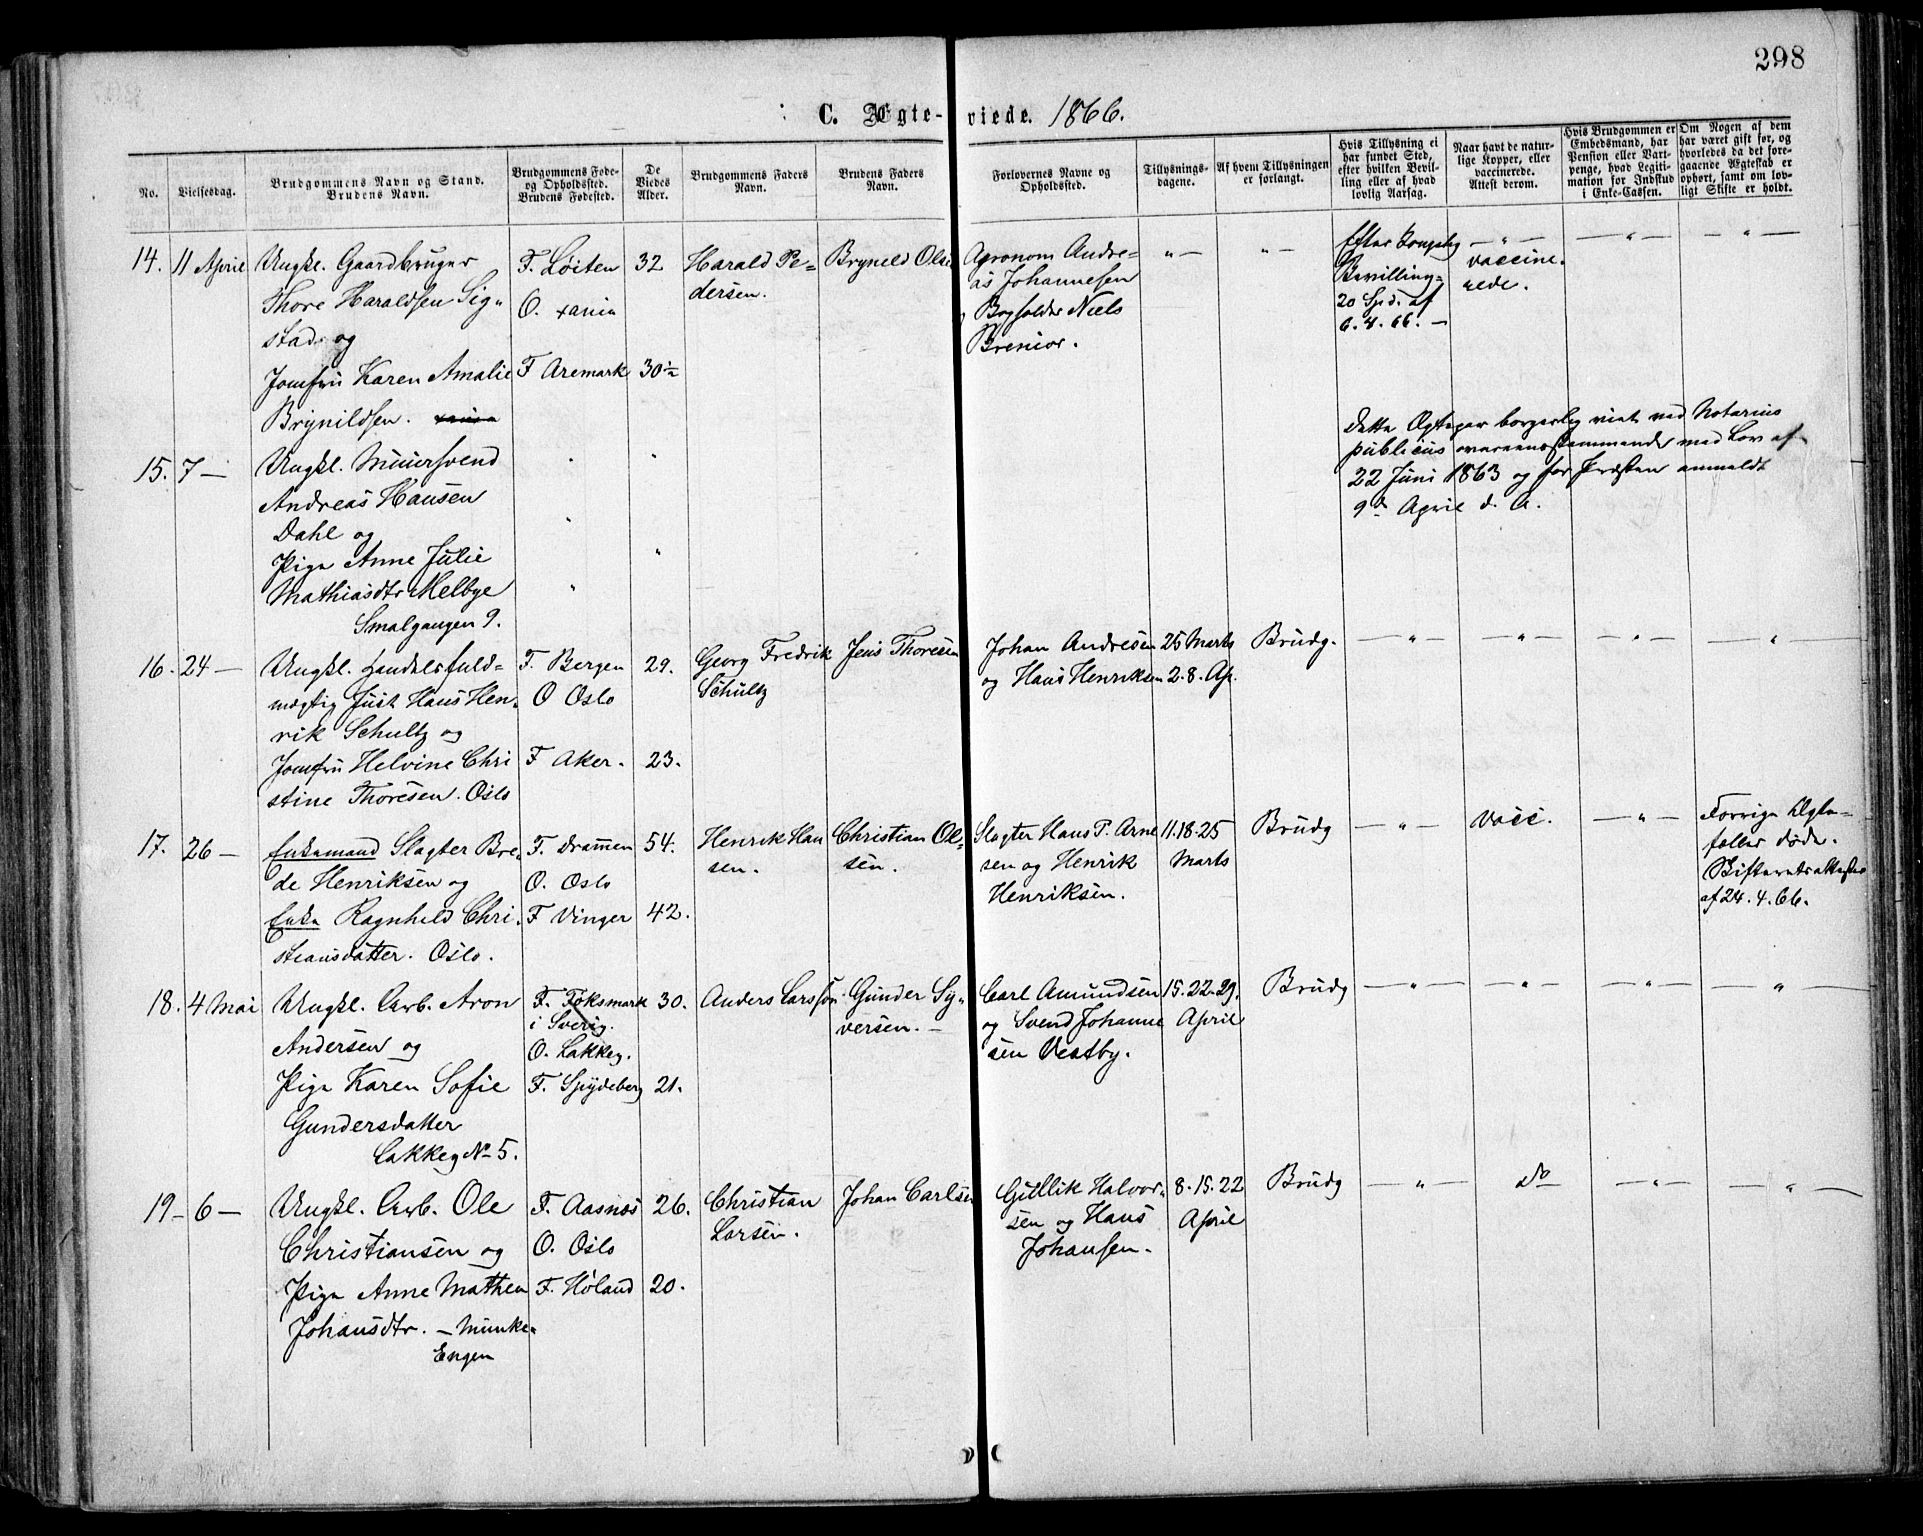 298
C. Ægteviede. 1866.
No.
Vielsesdag.
Brudgommens Navn og Stand.
Brudens Navn.
Brudgommens Føde-
og Opholdssted.
Brudens Fødested.
De
Viedes
Alder.
Brudgommens Faders
Navn.
Brudens Faders
Navn.
Forlovernes Navne og
Opholdssted.
Tillysnings-
dagene.
Af hvem Tillysningen
er forlangt.
Hvis Tillysning ei
har fundet Sted,
efter hvilken Bevil-
ling eller af hvad
lovlig Aarsag.
Naar havt de natur-
lige Kopper, eller
vaccinerede.
Attest derom.
Hvis Brudgommen er
Embedsmand, har
Pension eller Vart-
penge, hvad Legiti-
mation for Indskud
i Enke-Cassen.
Om Nogen af dem
har været gift før, og
hvorledes da det fore-
gaaende Ægteskab er
ophørt, samt om lov-
ligt Skifte er holdt.
14. 11 April
Ungkl. Gaardbruger
Thore Haraldsen Sig-
stad og
Jomfru Karen Amalie
Brynildsen. xania
F. Løiten
O. xania
F Aremark
32
30½
Harald Pe-
dersen.
Bryneld Olse
Agronom Andre-
as Johannesen
Bogholder Niels
Brenior.
" —
" —
Efter kongelig
Bevilling
20 Spd. af
6. 4. 66. —
— " —
vaccine-
rede.
— " —
— " —
15. 7 —
Ungkl. Muursvend
Andreas Hansen
Dahl og
Pige Anne Julie
Mathiasdtr Melbye
Smalgangen 9.
"
"
"
"
"
Dette Ægtepar borgerlig viet ved Notarius
publicus overensstemmende med Lov af
22 Juni 1863 og for Præsten anmeldt
9de April d. A.
16. 24 —
Ungkl. Handelsfuld-
mægtig Just Hans Hen-
rik Schultz og
Jomfru Helvine Chri
stine Thoresen. Oslo
F. Bergen
O Oslo
F Aker.
29.
23.
Georg Fredrik
Schultz
Jens Thoresen
Johan Andresen
og Hans Henriksen
25 Marts
2. 8. Ap.
Brudg.
— " —
— " —
— " —
"
17. 26 —
Enkemand Slagter Bre-
de Henriksen og
Enke Ragnhild Chri-
stiansdatter. Oslo.
F. Drammen
O. Oslo
F Vinger
54.
42.
Henrik Han
sen.
Christian Ol-
sen.
Slagter Hans P. Arne
sen og Henrik
Henriksen.
11. 18. 25
Marts
Brudg
— " —
Vacc.
— " —
Forrige Ægte-
fæller døde.
Skifteretsattester
af 24. 4. 66.
18. 4 Mai
Ungkl. Arb. Aron
Andersen og
Pige Karen Sofie
Gundersdatter
Lakkeg No 5.
F. Foksmark
i Sverig.
O. Lakkeg.
F. Spydeberg
30.
21.
Anders Larsson
Gunder Sy-
versen. —
Carl Amundsen
og Svend Johanne
sen Vestby.
15. 22. 29.
April
Brudg
— " —
— " —
— " —
"
19 — 6 —
Ungkl. Arb. Ole
Christiansen og
Pige Anne Mathea
Johansdtr. — Munke-
Engen
F. Aasnæs
O. Oslo
F. Høland
26.
20.
Christian
Larsen.
Johan Carlsen
Gullik Halvor-
sen og Hans
Johansen.
8. 15. 22
April
Brudg
— " —
do
— " —
— " —